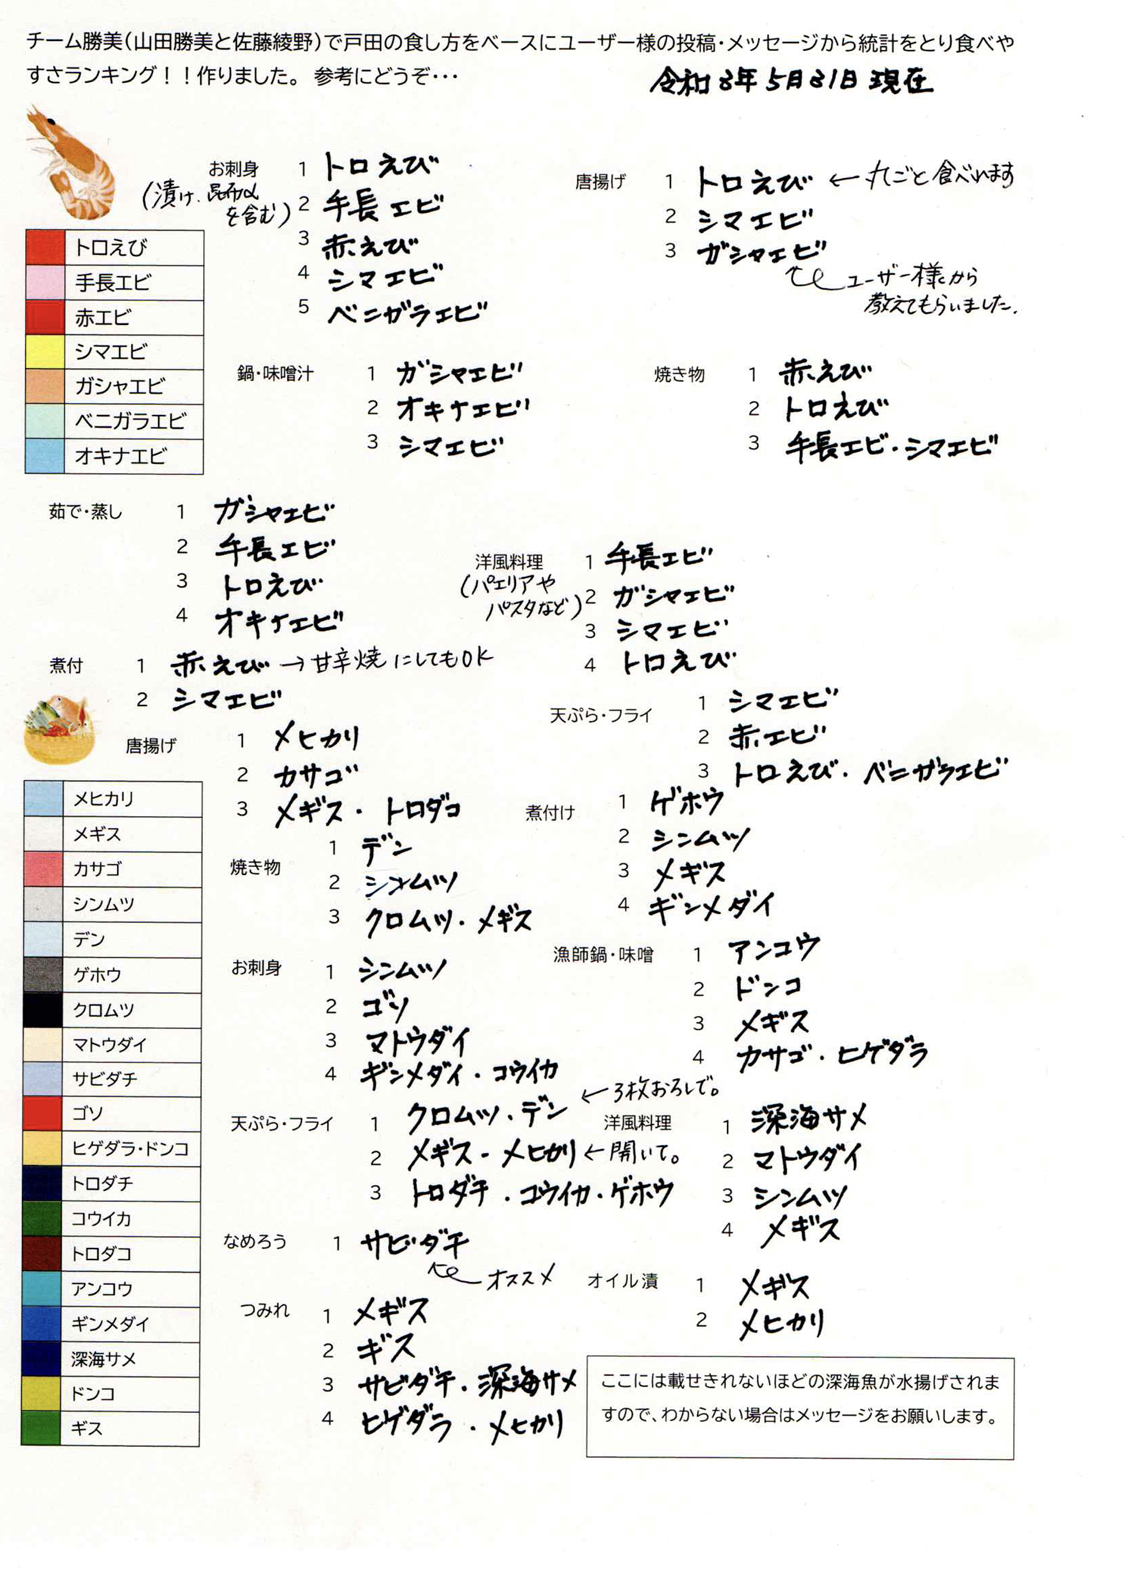 チーム勝美(山田勝美と佐藤綾野)で戸田の食し方をベースにユーザー様の投稿・メッセージから統計をとり食べや
すさランキング！！作りました。 参考にどうぞ･･･
令和3年5月31日 現在
お刺身
(漬け、昆布〆
を含む)
1 トロえび
2 手長エビ
3 赤えび
4 シマエビ
5 ベニガラエビ
唐揚げ
1 トロえび ← 丸ごと食べれます
2 シマエビ
3 ガシャエビ
ユーザー様から
教えてもらいました.
トロえび
手長エビ
赤エビ
シマエビ
ガシャエビ
ベニガラエビ
オキナエビ
鍋・味噌汁
1 ガシャエビ
2 オキナエビ
3 シマエビ
焼き物
1 赤えび
2 トロえび
3 手長エビ・シマエビ
茹で・蒸し
1 ガシャエビ
2 手長エビ
3 トロえび
4 オキナエビ
洋風料理
(パエリアや
パスタなど)
1 手長エビ
2 ガシャエビ
3 シマエビ
4 トロえび
煮付
1 赤えび → 甘辛焼にしてもOK
2 シマエビ
天ぷら・フライ
1 シマエビ
2 赤エビ
3 トロえび・ベニガラエビ
唐揚げ
1 メヒカリ
2 カサゴ
3 メギス・トロダコ
煮付け
1 ゲホウ
2 シンムツ
3 メギス
4 ギンメダイ
メヒカリ
メギス
カサゴ
シンムツ
デン
ゲホウ
クロムツ
マトウダイ
サビダチ
ゴソ
ヒゲダラ・ドンコ
トロダチ
コウイカ
トロダコ
アンコウ
ギンメダイ
深海サメ
ドンコ
ギス
焼き物
1 デン
2 シンムツ
3 クロムツ・メギス
お刺身
1 シンムツ
2 ゴソ
3 マトウダイ
4 ギンメダイ・コウイカ
漁師鍋・味噌
1 アンコウ
2 ドンコ
3 メギス
4 カサゴ・ヒゲダラ
天ぷら・フライ
1 クロムツ・デン ← 3枚おろしで。
2 メギス・メヒカリ ← 開いて。
3 トロダチ・コウイカ・ゲホウ
洋風料理
1 深海サメ
2 マトウダイ
3 シンムツ
4 メギス
なめろう
1 サビダチ
オススメ
オイル漬
1 メギス
2 メヒカリ
つみれ
1 メギス
2 ギス
3 サビダチ・深海サメ
4 ヒゲダラ・メヒカリ
ここには載せきれないほどの深海魚が水揚げされま
すので、わからない場合はメッセージをお願いします。